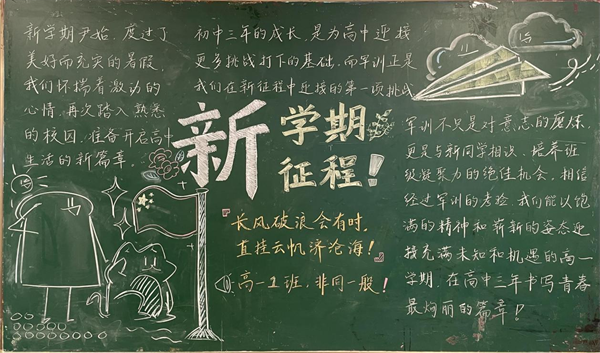 新学期伊始，度过了
美好而充实的暑假，
我们怀揣着激动的
心情，再次踏入熟悉
的校园，准备开启高中
生活的新篇章。
初中三年的成长，是为高中迎接
更多挑战打下的基础，而军训正是
我们在新征程中迎接的第一项挑战
新学期
征程！
『长风破浪会有时，
直挂云帆济沧海！』
高一1班，非同一般！
军训不只是对意志的磨练，
更是与新同学相识、培养班
级凝聚力的绝佳机会，相信
经过军训的考验，我们能以饱
满的精神和崭新的姿态迎
接充满未知和机遇的高一
学期，在高中三年书写青春
最绚丽的篇章！